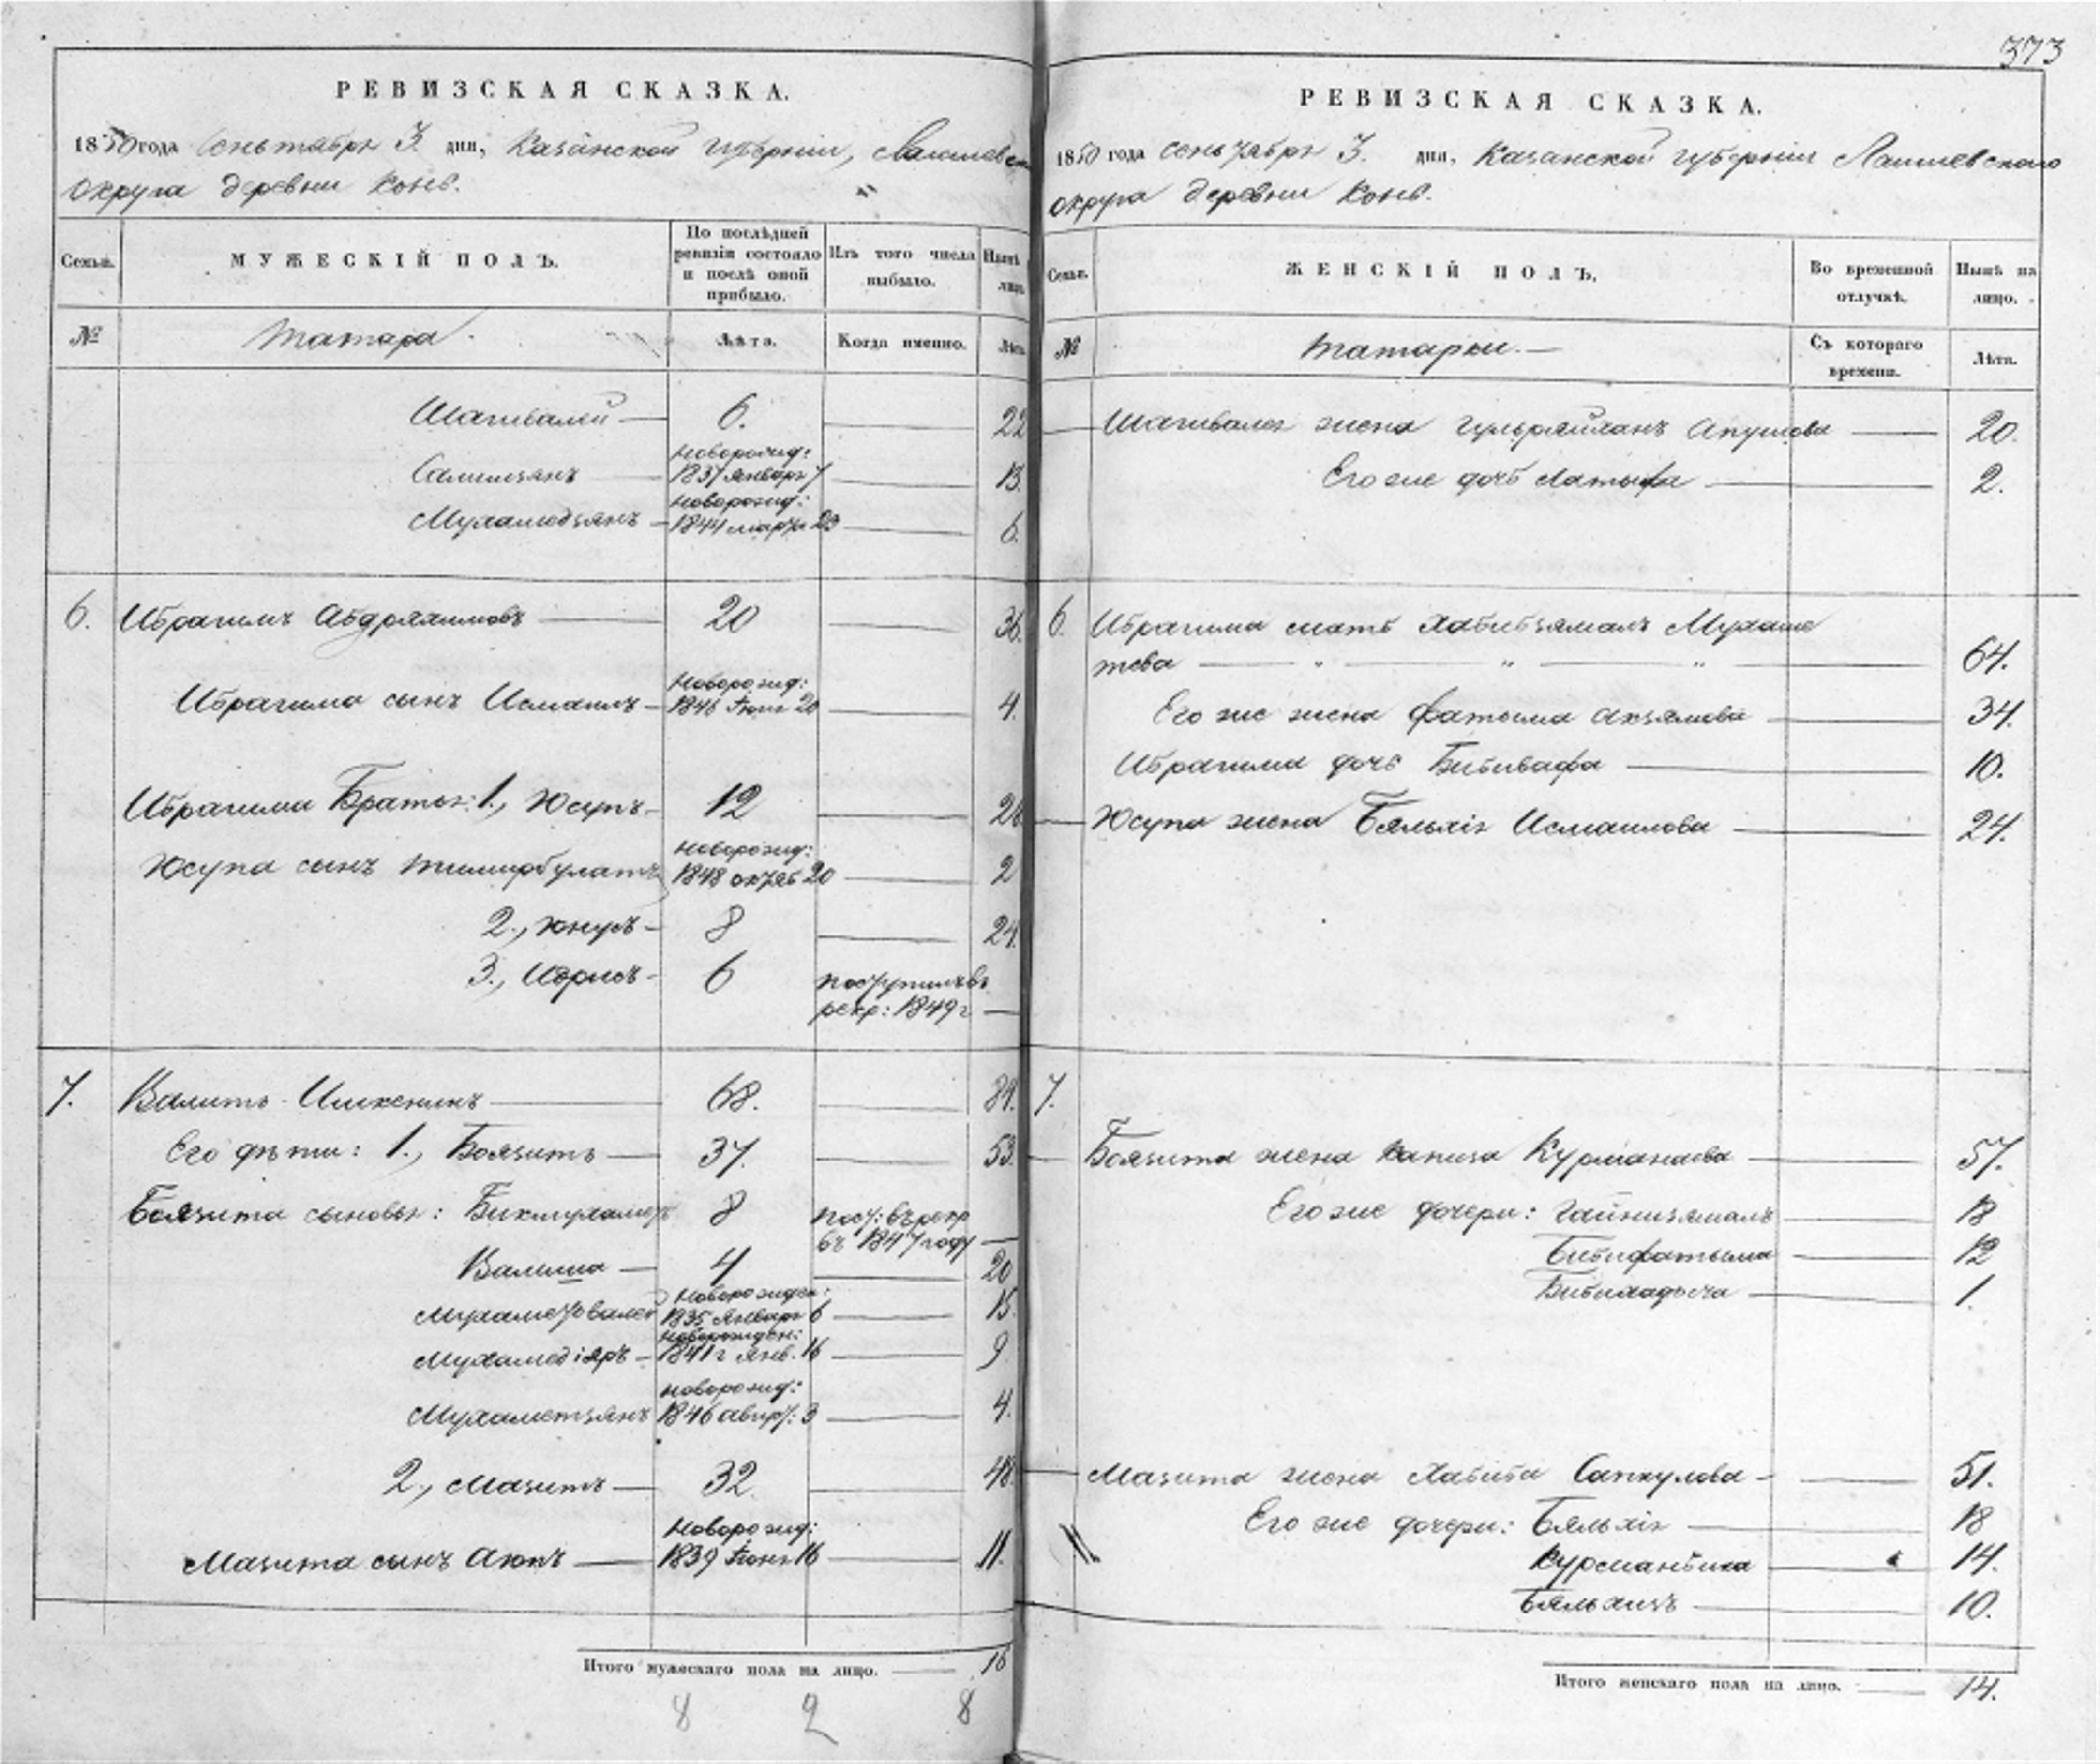 373
РЕВИЗСКАЯ СКАЗКА.
1850 года Сентября 3. дня, Казанской губерніи, Лаишевскаго
округа деревни Конь.
Семьи. МУЖЕСКІЙ ПОЛЪ. По послѣдней ревизіи состояло и послѣ оной прибыло. Изъ того числа выбыло. Нынѣ на лицо.
№ Татара. Лѣта. Когда именно. Лѣта.
Шагивалей — 6. — 22
Новорожд:
Самигзянъ — 1837 января 7 — 13.
Новорожд:
Мухамедзянъ — 1844 марта 23 — 6.
6. Ибрагимъ Абдряхимовъ — 20 — 36.
Новорожд:
Ибрагима сынъ Исмаилъ — 1846 Іюня 20 — 4.
Ибрагима Братья: 1., Юсупъ — 12 — 28
Новорожд:
Юсупа сынъ Тимирбулатъ 1848 октяб 20 — 2
2., Юнусъ — 8 — 24.
3., Идрисъ — 6 поступилъ въ
рекр: 1849 г —
7. Валитъ Ишкенинъ — 68. — 84.
Его дѣти: 1., Боязитъ — 37. — 53.
Боязита сыновья: Бикмухаметъ 8 пост: въ рекр
въ 1847 году —
Валиша — 4 — 20
Новорожден:
Мухаметвалей 1835 Января 6 — 15.
Новорожден:
Мухамедіяръ — 1841 г янв. 16 — 9
Новорожд:
Мухаметзянъ 1846 авгус: 3 — 4.
2., Мазитъ — 32. — 48.
Новорожд:
Мазита сынъ Аюпъ — 1839 Іюня 16 — 11.
Итого мужескаго пола на лицо. — 16
8 2 8
РЕВИЗСКАЯ СКАЗКА.
1850 года сентября 3. дня, Казанской губерніи Лаишевскаго
округа деревни Конь.
Семьи. ЖЕНСКІЙ ПОЛЪ. Во временной отлучкѣ. Нынѣ на лицо.
№ Татарки. — Съ котораго времени. Лѣта.
Шагивалея жена Гульряйханъ Апушова — 20.
Его же дочь Латыфа — 2.
6. Ибрагима мать Хабибзямалъ Мухаме
това — " — " — " — 64.
Его же жена Фатыма Акзямова — 34.
Ибрагима дочь Бибивафа — 10.
Юсупа жена Бяльхія Исмаилова — 24.
7.
Боязита жена Капиза Курманаева — 57.
Его же дочери: Гайнизямалъ — 18
Бибифатыма — 12
Бибихадыча — 1.
Мазита жена Хабиба Сапкулова — 51.
Его же дочери: Бяльхія — 18
Курманбика — 14.
Бяльхизъ — 10.
Итого женскаго пола на лицо. — 14.